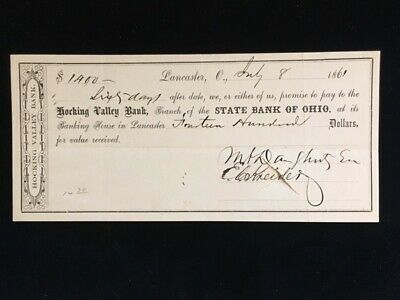 $ 1400 — Lancaster, O., July 8 1861
Sixty days after date, we, or either of us, promise to pay to the
Hocking Valley Bank, Branch of the STATE BANK OF OHIO, at its
Banking House in Lancaster Fourteen Hundred Dollars,
for value received.
HOCKING VALLEY BANK.